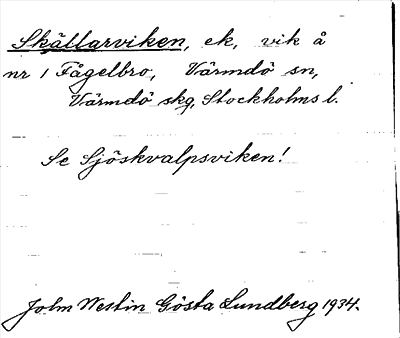 Skällarviken, ek, vik å
nr 1 Fågelbro, Värmdö sn,
Värmdö skg, Stockholms l.
Se Sjöskvalpsviken!
John Westin Gösta Lundberg 1934.